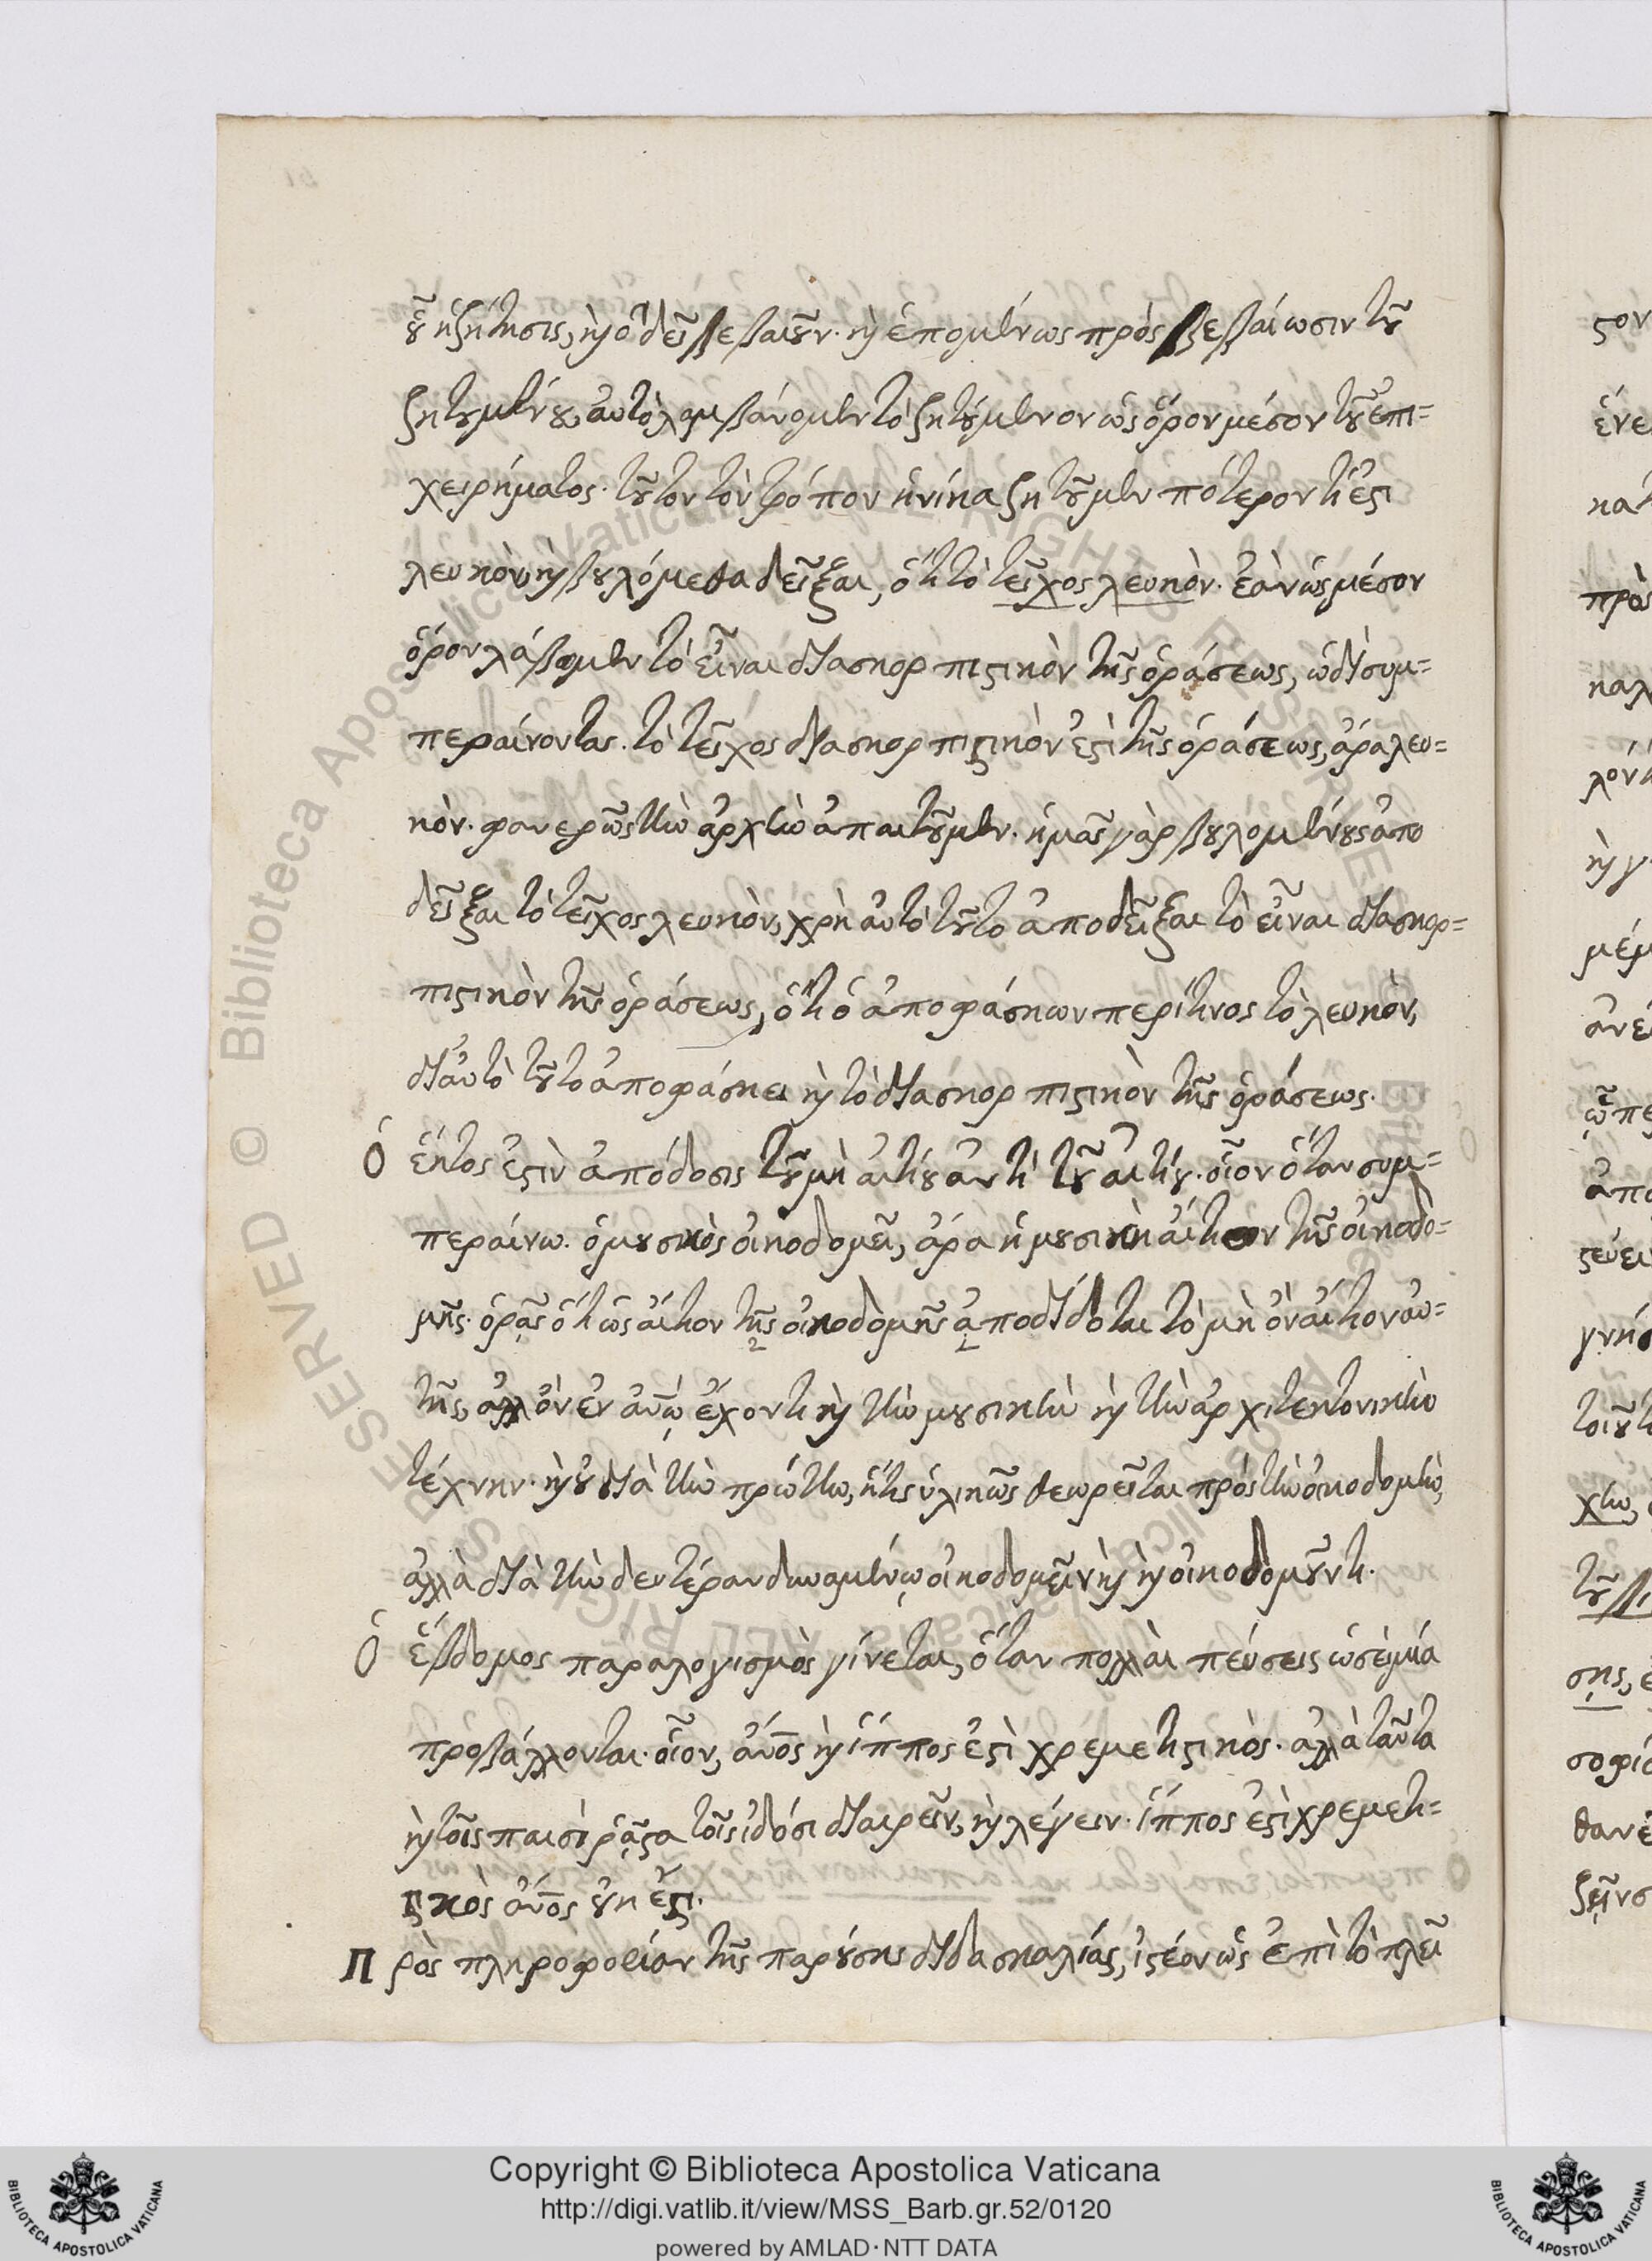 οὗ ἡ ζήτησις, καὶ ὃ δεῖ βεβαιοῦν. καὶ ἑπομένως πρὸς βεβαίωσιν τοῦ
ζητουμένου, αὐτὸ λαμβάνομεν τὸ ζητούμενον ὡς ὅρον μέσον τοῦ ἐπι=
χειρήματος. τοῦτον τὸν τρόπον ἡνίκα ζητοῦμεν πότερον τί ἐστι
λευκὸν, καὶ βουλόμεθα δεῖξαι, ὅτι τὸ τεῖχος λευκὸν. ἐὰν ὡς μέσον
ὅρον λάβωμεν τὸ εἶναι διασκορπιστικὸν τῆς ὁράσεως, ὡδὶ συμ=
περαίνοντας. τὸ τεῖχος διασκορπιστικὸν ἐστὶ τῆς ὁράσεως, ἄρα λευ=
κὸν. φανερῶς τὴν ἀρχὴν ἀπαιτοῦμεν. ἡμᾶς γὰρ βουλομένους ἀπο
δεῖξαι τὸ τεῖχος λευκὸν, χρὴ αὐτὸ τοῦτο ἀποδεῖξαι τὸ εἶναι διασκορ=
πιστικὸν τῆς ὁράσεως, ὅτι ὁ ἀποφάσκων περί τινος τὸ λευκὸν,
δι' αὐτὸ τοῦτο ἀποφάσκει καὶ τὸ διασκορπιστικὸν τῆς ὁράσεως.
Ὁ ἕκτος ἐστὶν ἀπόδοσις τοῦ μὴ αἰτίου ἀντὶ τοῦ αἰτίου. οἷον ὅταν συμ=
περαίνω. ὁ μουσικὸς οἰκοδομεῖ, ἄρα ἡ μουσικὴ αἴτιον τῆς οἰκοδο=
μῆς. ὁρᾷς ὅτι ὡς αἴτιον τῆς οἰκοδομῆς ἀποδίδοται τὸ μὴ ὂν αἴτιον αὐ=
τῆς, ἀλλ' ὂν ἐν ἀνῳ ἔχοντι καὶ τὴν μουσικὴν καὶ τὴν ἀρχιτεκτονικὴν
τέχνην. καὶ οὐ διὰ τὴν πρώτην, ἥτις ὑλικῶς θεωρεῖται πρὸς τὴν οἰκοδομὴν,
ἀλλὰ διὰ τὴν δευτέραν δυναμένῳ οἰκοδομεῖν καὶ καὶ οἰκοδομοῦντι.
Ὁ ἕβδομος παραλογισμὸς γίνεται, ὅταν πολλαὶ πεύσεις ὡσεὶ μία
προβάλλονται. οἷον, ἄνος καὶ ἵππος ἐστὶ χρεμετιστικὸς. ἀλλὰ ταῦτα
καὶ τοῖς παισὶ ῥᾷστα τοῖς ἰδόσι διαιρεῖν, καὶ λέγειν. ἵππος ἐστὶ χρεμετι=
στικὸς ἄνος οὐκ ἔστι.
Πρὸς πληροφορίαν τῆς παρούσης διδασκαλίας, ἰστέον ὡς ἐπὶ τὸ πλεῖ
Copyright © Biblioteca Apostolica Vaticana
http://digi.vatlib.it/view/MSS_Barb.gr.52/0120
powered by AMLAD·NTT DATA